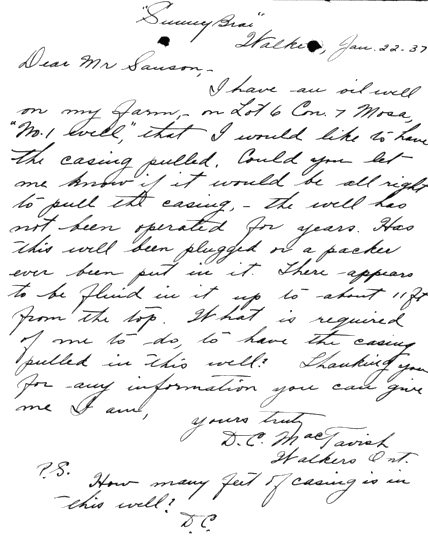 "Sunny Brai"
Walkers, Jan. 22-37
Dear Mr Sanson,-
I have an oil well
on my farm,- on Lot 6 Con. 7 Mosa,
"No. 1 well", that I would like to have
the casing pulled. Could you let
me know if it would be all right
to pull the casing,- the well has
not been operated for years. Has
this well been plugged or a packer
ever been put in it. There appears
to be fluid in it up to about 11 ft
from the top. What is required
of me to do, to have the casing
pulled in this well? Thanking you
for any information you can give
me I am,
yours truly
D. C. MacTavish
Walkers Ont.
P.S. How many feet of casing is in
this well?
D.C.